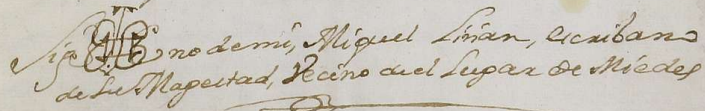 Sig no de mi, Miguel Liñan, escribano
de Su Magestad, Vecino del Lugar de Miedes